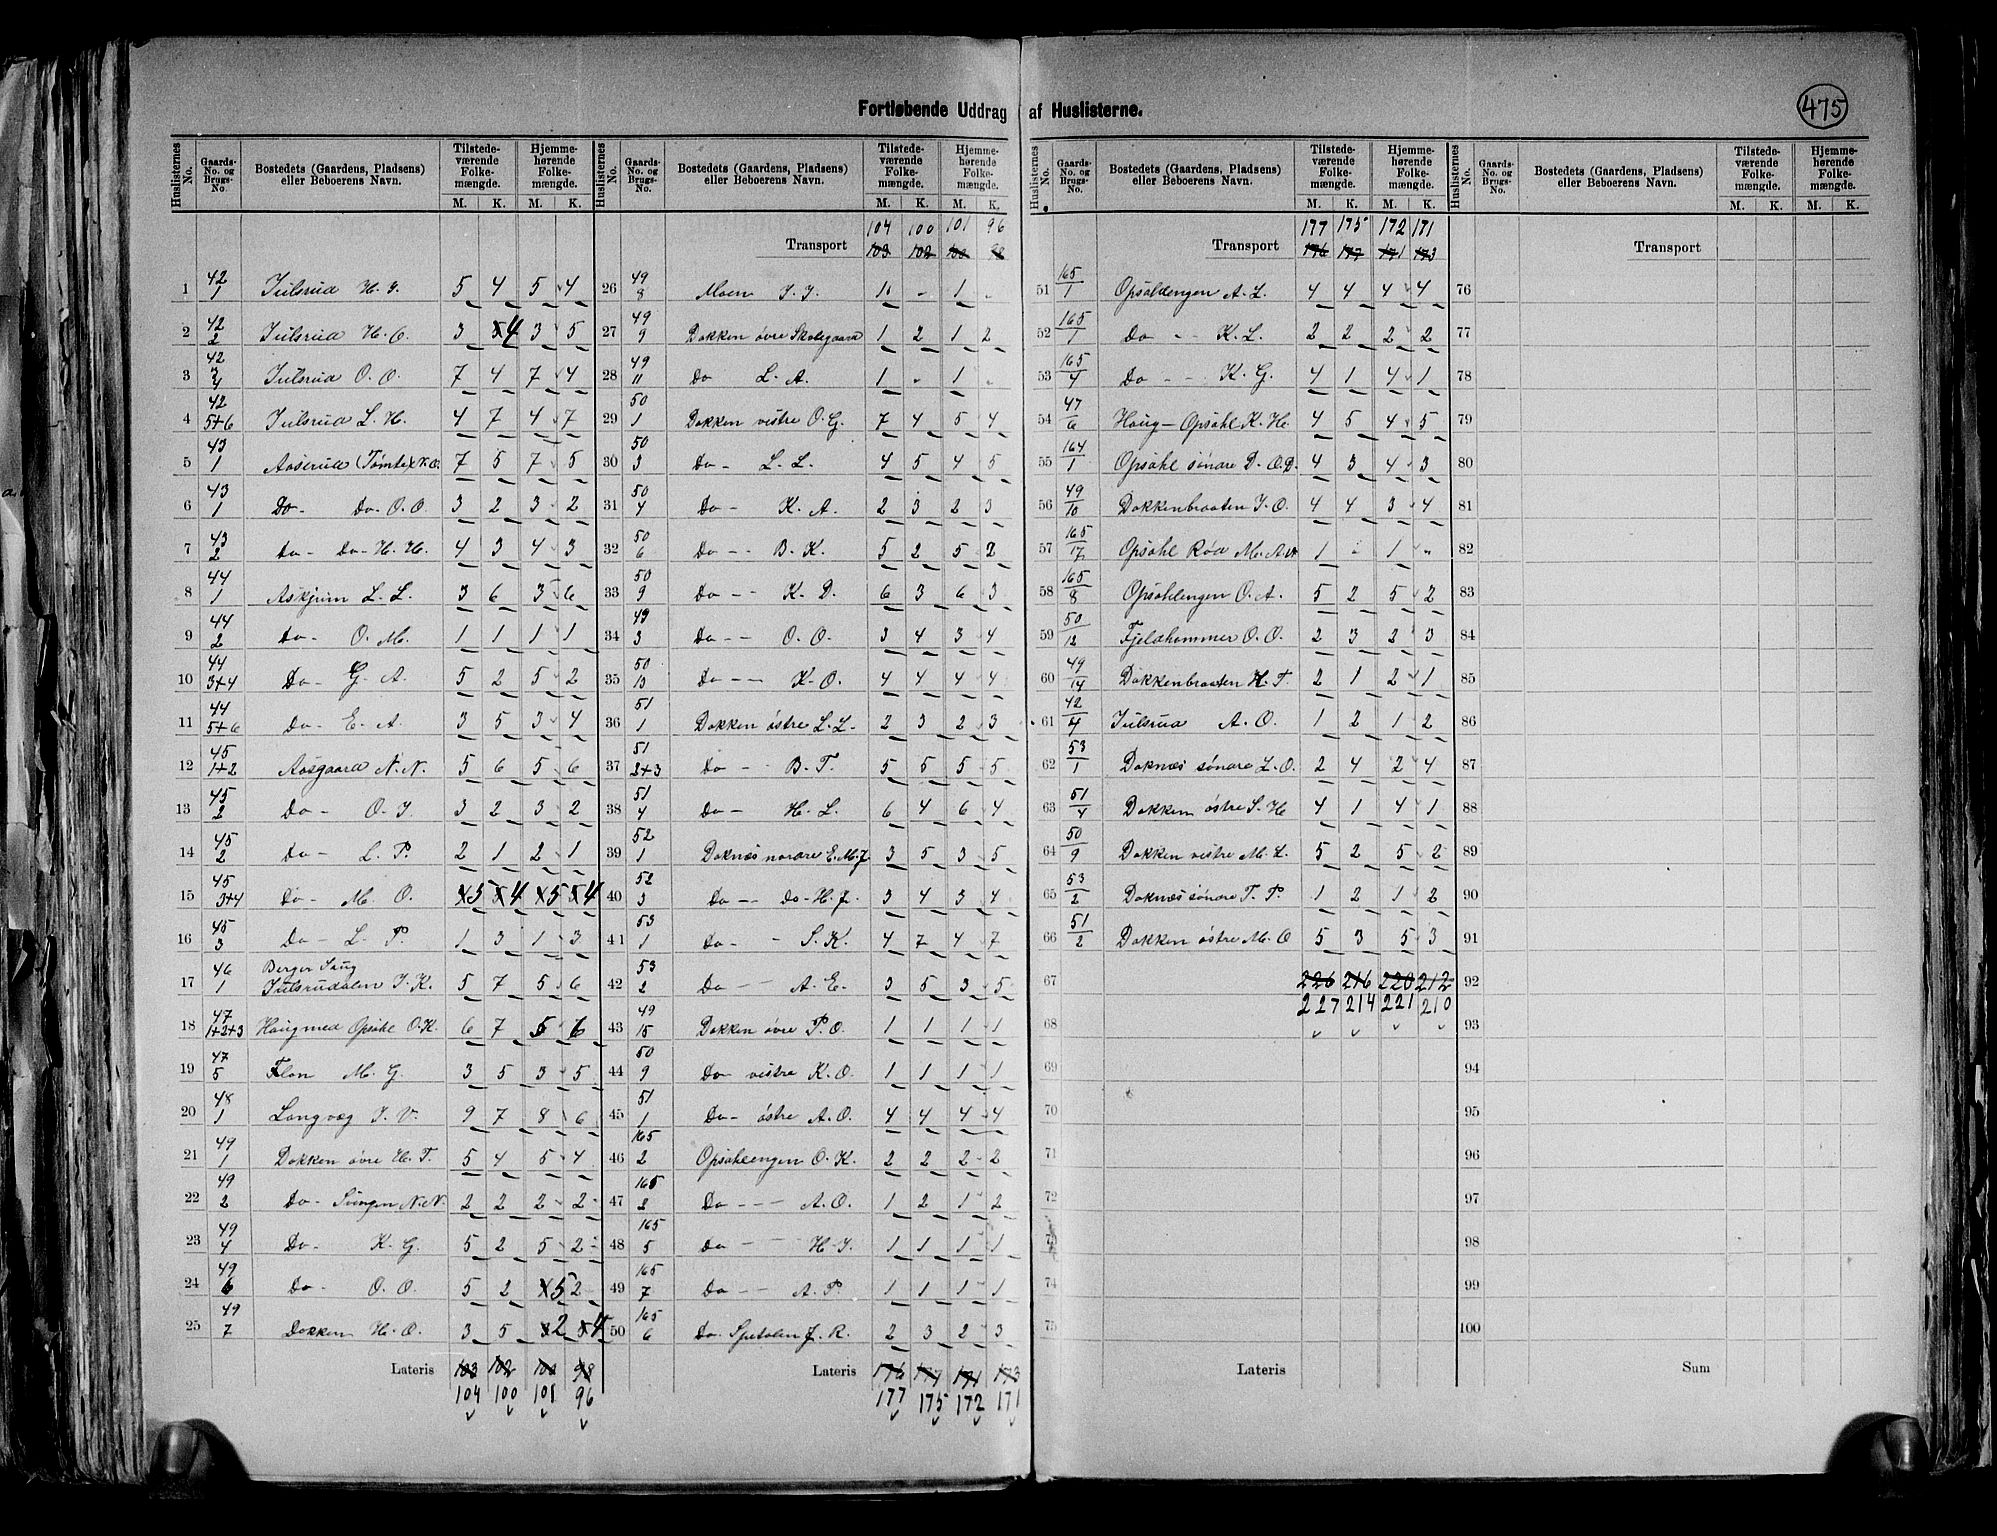 Fortløbende Uddrag af Huslisterne.
475
Huslisternes No. Gaards-No. og Brugs-No. Bostedets (Gaardens, Pladsens) eller Beboerens Navn. Tilstede-værende Folke-mængde. M. K. Hjemme-hørende Folke-mængde. M. K.
1 42/1 Julsrud H. J. 5 4 5 4
2 42/2 Julsrud H. O. 3 4 3 5
3 42 Julsrud O. O. 7 4 7 4
4 42/5+6 Julsrud L. H. 4 7 4 7
5 43/1 Aaserud (Tømte) N. O. 7 5 7 5
6 43/1 Do - Do - O. O. 3 2 3 2
7 43/2 Do - Do - H. H. 4 3 4 3
8 44/1 Askjum L. L. 3 6 3 6
9 44/2 Do - O. M. 1 1 1 1
10 44/3+4 Do - G. A. 5 2 5 2
11 44/5+6 Do - E. A. 3 5 3 4
12 45/1+2 Aasgaard N. N. 5 6 5 6
13 45/2 Do - O. J. 3 2 3 2
14 45/2 Do - L. P. 2 1 2 1
15 45/3+4 Do - M. O. 5 4 5 4
16 45/3 Do - L. P. 1 3 1 3
17 46/1 Berger Saug Julsrudalen J. K. 5 7 5 6
18 47/1+2+3 Haug med Opsahl O. K. 6 7 5 6
19 47/5 Flon M. G. 3 5 3 5
20 48/1 Langvæg J. V. 9 7 8 6
21 49/1 Dokken øvre H. T. 5 4 5 4
22 49/2 Do - Svingen N. N. 2 2 2 2
23 49/4 Do - K. G. 5 2 5 2
24 49/6 Do - O. O. 5 2 5 2
25 49/7 Dokken H. O. 3 5 2 4
Lateris 103 102 100 98
104 100 101 96
Huslisternes No. Gaards-No. og Brugs-No. Bostedets (Gaardens, Pladsens) eller Beboerens Navn. Tilstede-værende Folke-mængde. M. K. Hjemme-hørende Folke-mængde. M. K.
104 100 101 96
Transport 103 102 100 98
26 49/8 Moen J. J. 1 - 1 -
27 49/9 Dokken øvre Skolegaard 1 2 1 2
28 49/11 Do L. A. 1 - 1 -
29 50/1 Dokken vestre O. G. 7 4 5 4
30 50/3 Do - L. L. 4 5 4 5
31 50/4 Do - K. A. 2 3 2 3
32 50/6 Do - - B. K. 5 2 5 2
33 50/9 Do - - K. D. 6 3 6 3
34 49/3 Do - - O. O. 3 4 3 4
35 50/13 Do - - K. O. 4 4 4 4
36 51/1 Dokken østre L. L. 2 3 2 3
37 51/2+3 Do - - B. T. 5 5 5 5
38 51/4 Do - H. L. 6 4 6 4
39 52/1 Doknæs nordre E. M. J. 3 5 3 5
40 52/3 Do - - Do - H. J. 3 4 3 4
41 53/1 Do - - S. K. 4 7 4 7
42 53/2 Do - - A. E. 3 5 3 5
43 49/15 Dokken øvre P. O. 1 1 1 1
44 50/9 Do vestre K. O. 1 1 1 1
45 51/1 Do - østre A. O. 4 4 4 4
46 165/2 Opsahlengen O. K. 2 2 2 2
47 165/2 Do - - - A. O. 1 2 1 2
48 165/5 Do - - H. J. 1 1 1 1
49 165/7 Do - - A. P. 1 1 1 1
50 165/6 Do - Spetalen J. R. 2 3 2 3
Lateris 176 177 171 173
177 175 172 171
Huslisternes No. Gaards-No. og Brugs-No. Bostedets (Gaardens, Pladsens) eller Beboerens Navn. Tilstede-værende Folke-mængde. M. K. Hjemme-hørende Folke-mængde. M. K.
177 175 172 171
Transport 176 177 171 173
51 165/1 Opsahlengen A. L. 4 4 4 4
52 165/1 Do - - K. L. 2 2 2 2
53 165/4 Do - - K. G. 4 1 4 1
54 47/6 Haug - Opsahl K. H. 4 5 4 5
55 164/1 Opsahl søndre D. O. D. 4 3 4 3
56 49/10 Dokkenbraaten J. O. 4 4 3 4
57 165/17 Opsahl Rød M. A. 1 - 1 -
58 165/8 Opsahlengen O. A. 5 2 5 2
59 50/12 Fjeldhammer O. O. 2 3 2 3
60 49/14 Dokkenbraaten H. T. 2 1 2 1
61 42/4 Julsrud A. O. 1 2 1 2
62 53/1 Doknæs søndre L. O. 2 4 2 4
63 51/4 Dokken østre S. H. 4 1 4 1
64 50/9 Dokken vestre M. L. 5 2 5 2
65 53/2 Doknæs søndre T. P. 1 2 1 2
66 51/2 Dokken østre M. O. 5 3 5 3
67 226 216 220 212
227 214 221 210
68
69
70
71
72
73
74
75
Lateris
Huslisternes No. Gaards-No. og Brugs-No. Bostedets (Gaardens, Pladsens) eller Beboerens Navn. Tilstede-værende Folke-mængde. M. K. Hjemme-hørende Folke-mængde. M. K.
Transport
76
77
78
79
80
81
82
83
84
85
86
87
88
89
90
91
92
93
94
95
96
97
98
99
100
Sum